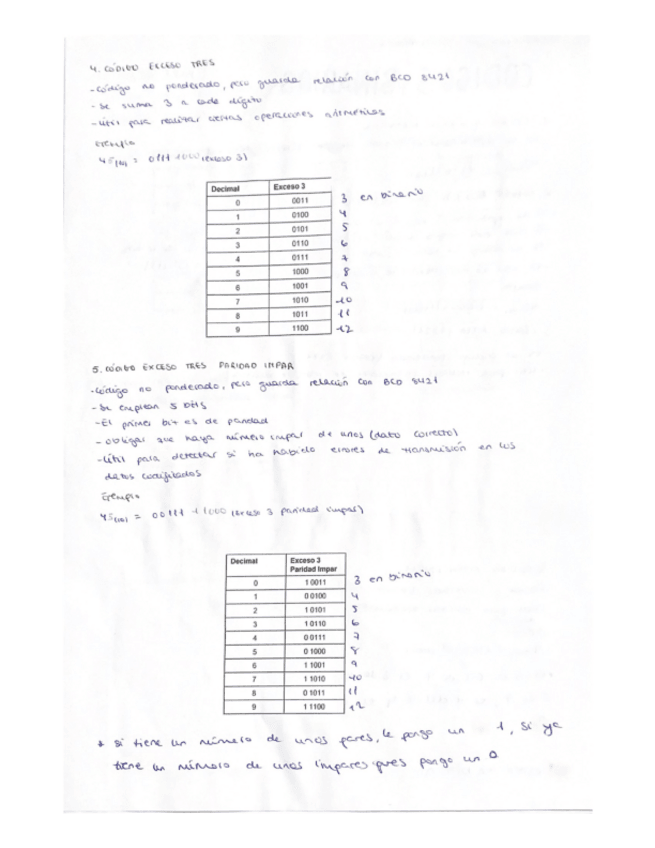 4. CÓDIGO EXCESO TRES
- Código no ponderado, pero guarda relación con BCD 8421
- Se suma 3 a cada dígito
- Útil para realizar ciertas operaciones aritméticas
Ejemplo
45(10) = 0111 1000 (exceso 3)
Decimal Exceso 3
0 0011 3 en binario
1 0100 4
2 0101 5
3 0110 6
4 0111 7
5 1000 8
6 1001 9
7 1010 10
8 1011 11
9 1100 12
5. CÓDIGO EXCESO TRES PARIDAD IMPAR
- Código no ponderado, pero guarda relación con BCD 8421
- Se emplean 5 bits
- El primer bit es de paridad
- obligar que haya número impar de unos (dato correcto)
- Útil para detectar si ha habido errores de transmisión en los
datos codificados
Ejemplo
45(10) = 00111 11000 (exceso 3 paridad impar)
Decimal Exceso 3
Paridad Impar
0 1 0011 3 en binario
1 0 0100 4
2 1 0101 5
3 1 0110 6
4 0 0111 7
5 0 1000 8
6 1 1001 9
7 1 1010 10
8 0 1011 11
9 1 1100 12
* si tiene un número de unos pares, le pongo un 1, si ya
tiene un número de unos impares pues pongo un 0